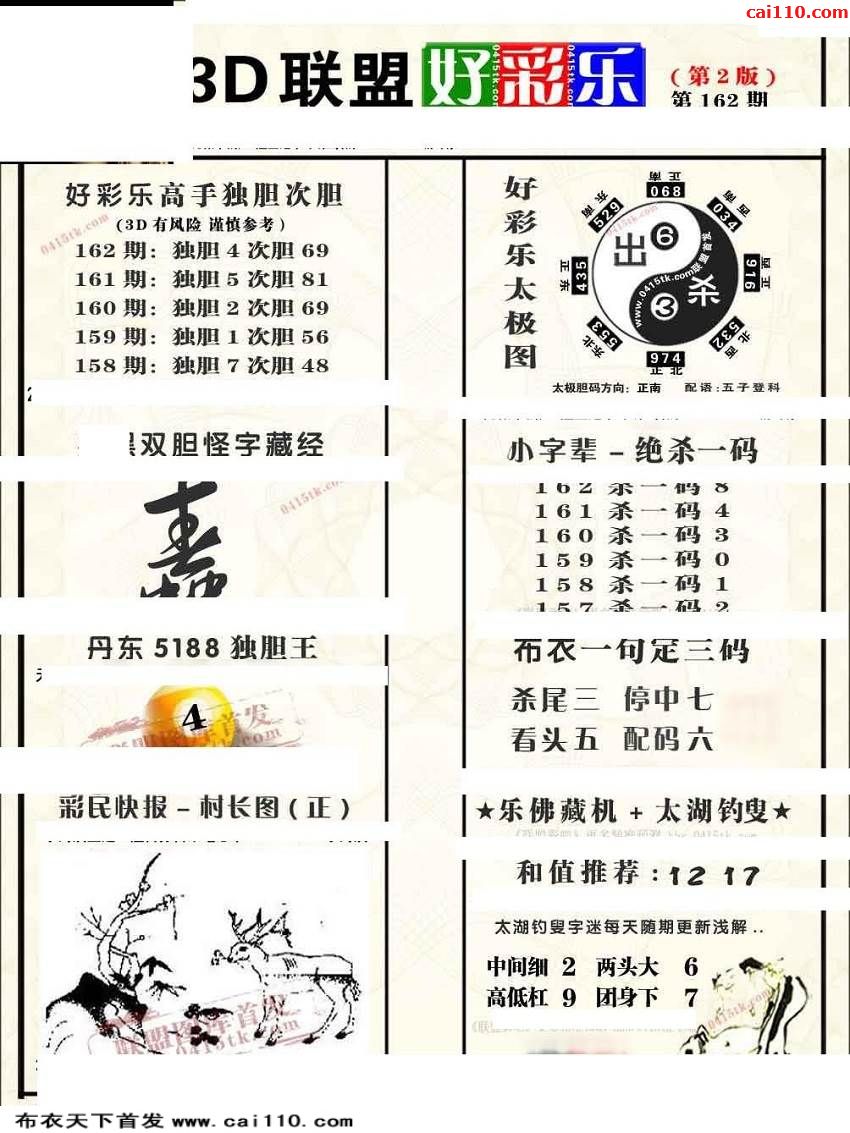 cai110.com
3D 联盟 好彩乐
0415tk.com 0415tk.com 0415tk.com
(第2版)
第 162 期
好彩乐高手独胆次胆
(3D有风险 谨慎参考)
0415tk.com
162 期: 独胆 4 次胆 69
161 期: 独胆 5 次胆 81
160 期: 独胆 2 次胆 69
159 期: 独胆 1 次胆 56
158 期: 独胆 7 次胆 48
好彩乐太极图
正南
068
东南
529
西南
034
正东
435
正西
916
东北
553
西北
532
974
正北
出 6
杀 3
www.0415tk.com联盟首发
0415tk.com
太极胆码方向: 正南 配语:五子登科
双胆怪字藏经
0415tk.com
小字辈 – 绝杀一码
162 杀一码 8
161 杀一码 4
160 杀一码 3
159 杀一码 0
158 杀一码 1
157 杀一码 2
丹东 5188 独胆王
4
布衣一句定三码
杀尾三 停中七
看头五 配码六
彩民快报 – 村长图 ( 正 )
联盟图库首发
0415tk.com
★乐彿藏机 + 太湖钓叟★
和值推荐 : 12 17
太湖钓叟字迷每天随期更新浅解 ..
中间细 2 两头大 6
高低杠 9 团身下 7
0415tk.com
布衣天下首发 www.cai110.com